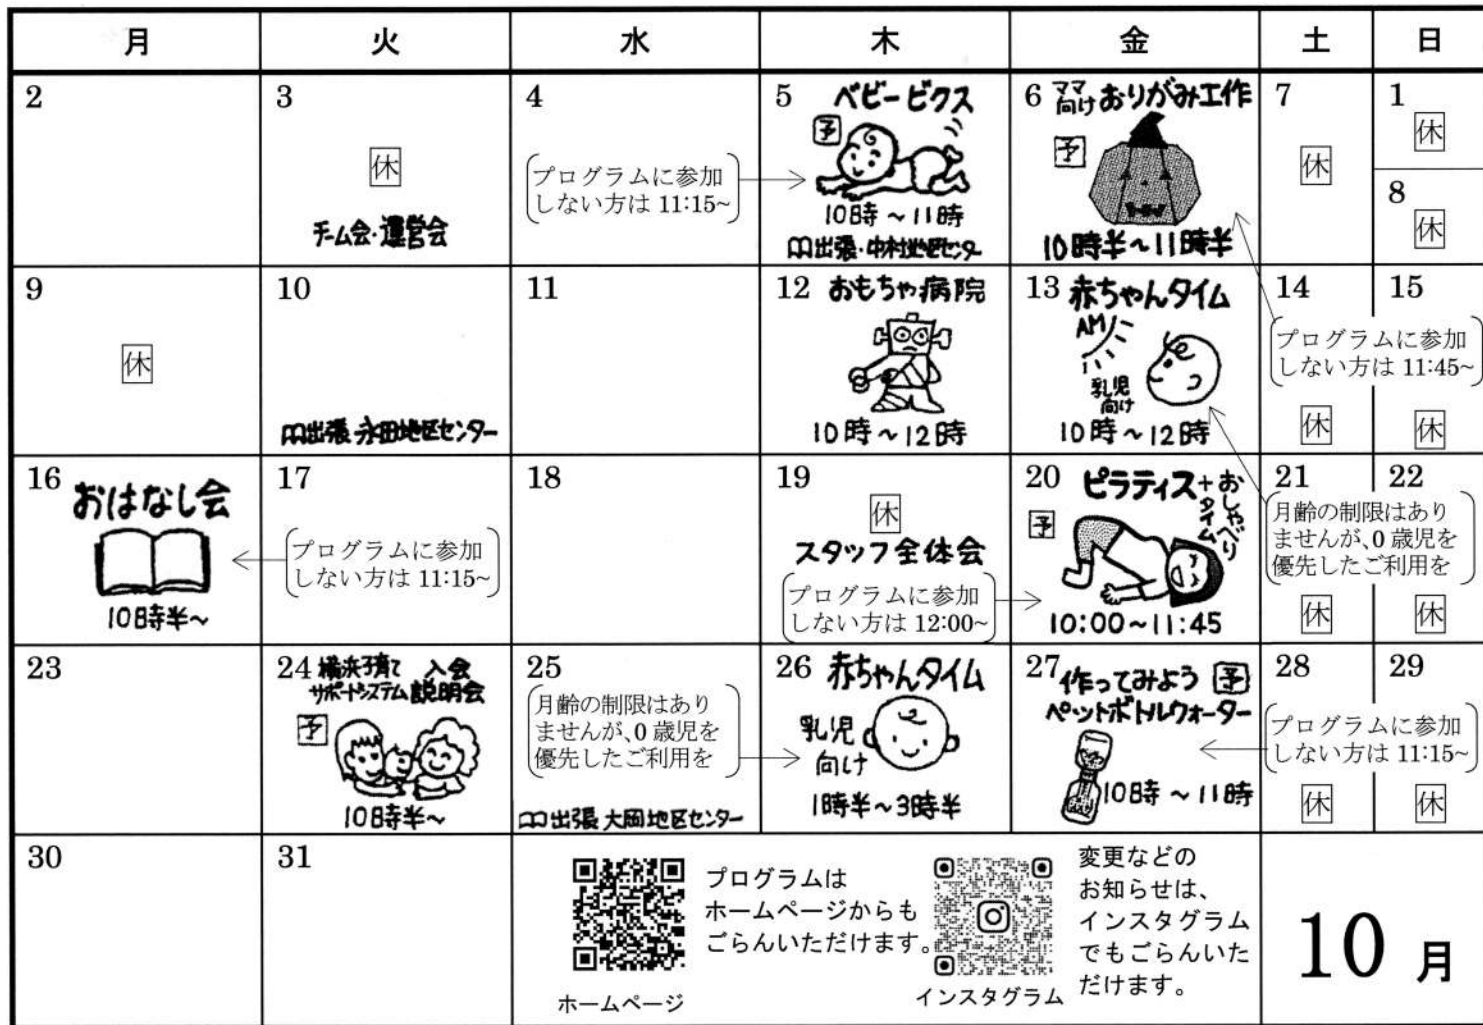 月 火 水 木 金 土 日
2
3
休
チーム会・運営会
4
プログラムに参加
しない方は 11:15~
5 ベビービクス
予
10時～11時
出張・中村地区センター
6 ママ向け おりがみ工作
予
10時半～11時半
7
休
1
休
8
休
9
休
10
出張 永田地区センター
11
12 おもちゃ病院
10時～12時
13 赤ちゃんタイム
AM
乳児
向け
10時～12時
14 15
プログラムに参加
しない方は 11:45~
休 休
16 おはなし会
10時半～
17
プログラムに参加
しない方は 11:15~
18
19
休
スタッフ全体会
プログラムに参加
しない方は 12:00~
20 ピラティス
+おしゃべり
タイム
予
10:00～11:45
21 22
月齢の制限はあり
ませんが、0 歳児を
優先したご利用を
休 休
23
24 横浜子育て 入会
サポートシステム 説明会
予
10時半～
25
月齢の制限はあり
ませんが、0 歳児を
優先したご利用を
出張 大岡地区センター
26 赤ちゃんタイム
乳児
向け
1時半～3時半
27 作ってみよう 予
ペットボトルウォーター
10時～11時
28 29
プログラムに参加
しない方は 11:15~
休 休
30
31
プログラムは
ホームページからも
ごらんいただけます。
ホームページ
変更などの
お知らせは、
インスタグラム
でもごらんいた
だけます。
インスタグラム
10 月